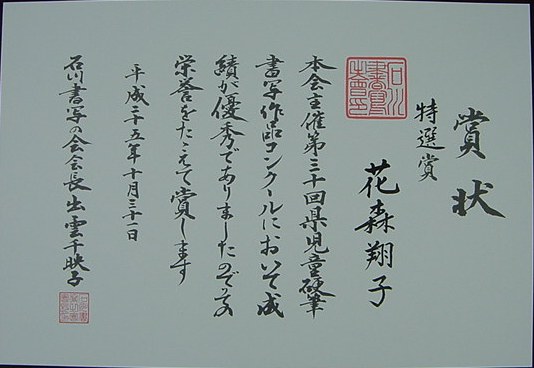 賞状
特選賞
花森翔子
本会主催第三十回県児童硬筆
書写作品コンクールにおいて成
績が優秀でありましたのでその
栄誉をたたえて賞します
平成二十五年十月三十一日
石川書写の会会長出雲千映子